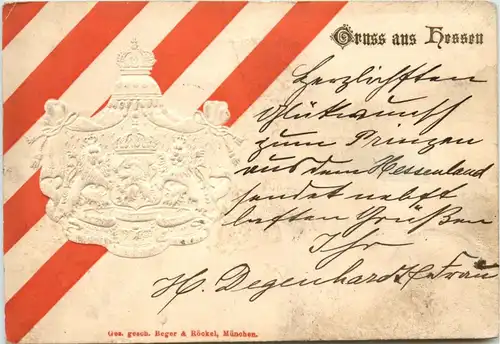 Gruss aus Hessen
Herzlichsten
Glückwunsch
zum Prinzen
aus dem Hessenland
sendet nebst
besten Grüßen
Ihr
H. Degenhardt & Frau
Ges. gesch. Reger & Röckel, München.